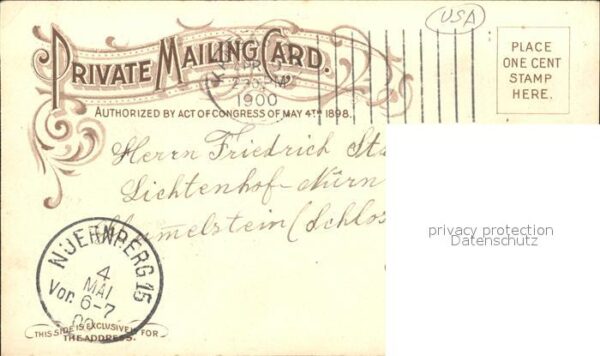 USA
PRIVATE MAILING CARD.
PLACE
ONE CENT
STAMP
HERE.
1900
AUTHORIZED BY ACT OF CONGRESS OF MAY 4TH 1898.
Herrn Friedrich
Lichtenhof-Nürn
Hummelstein (Schlos
privacy protection
Datenschutz
NUERNBERG 15
4
MAI
Vor. 6-7
00
THIS SIDE IS EXCLUSIVELY FOR
THE ADDRESS.